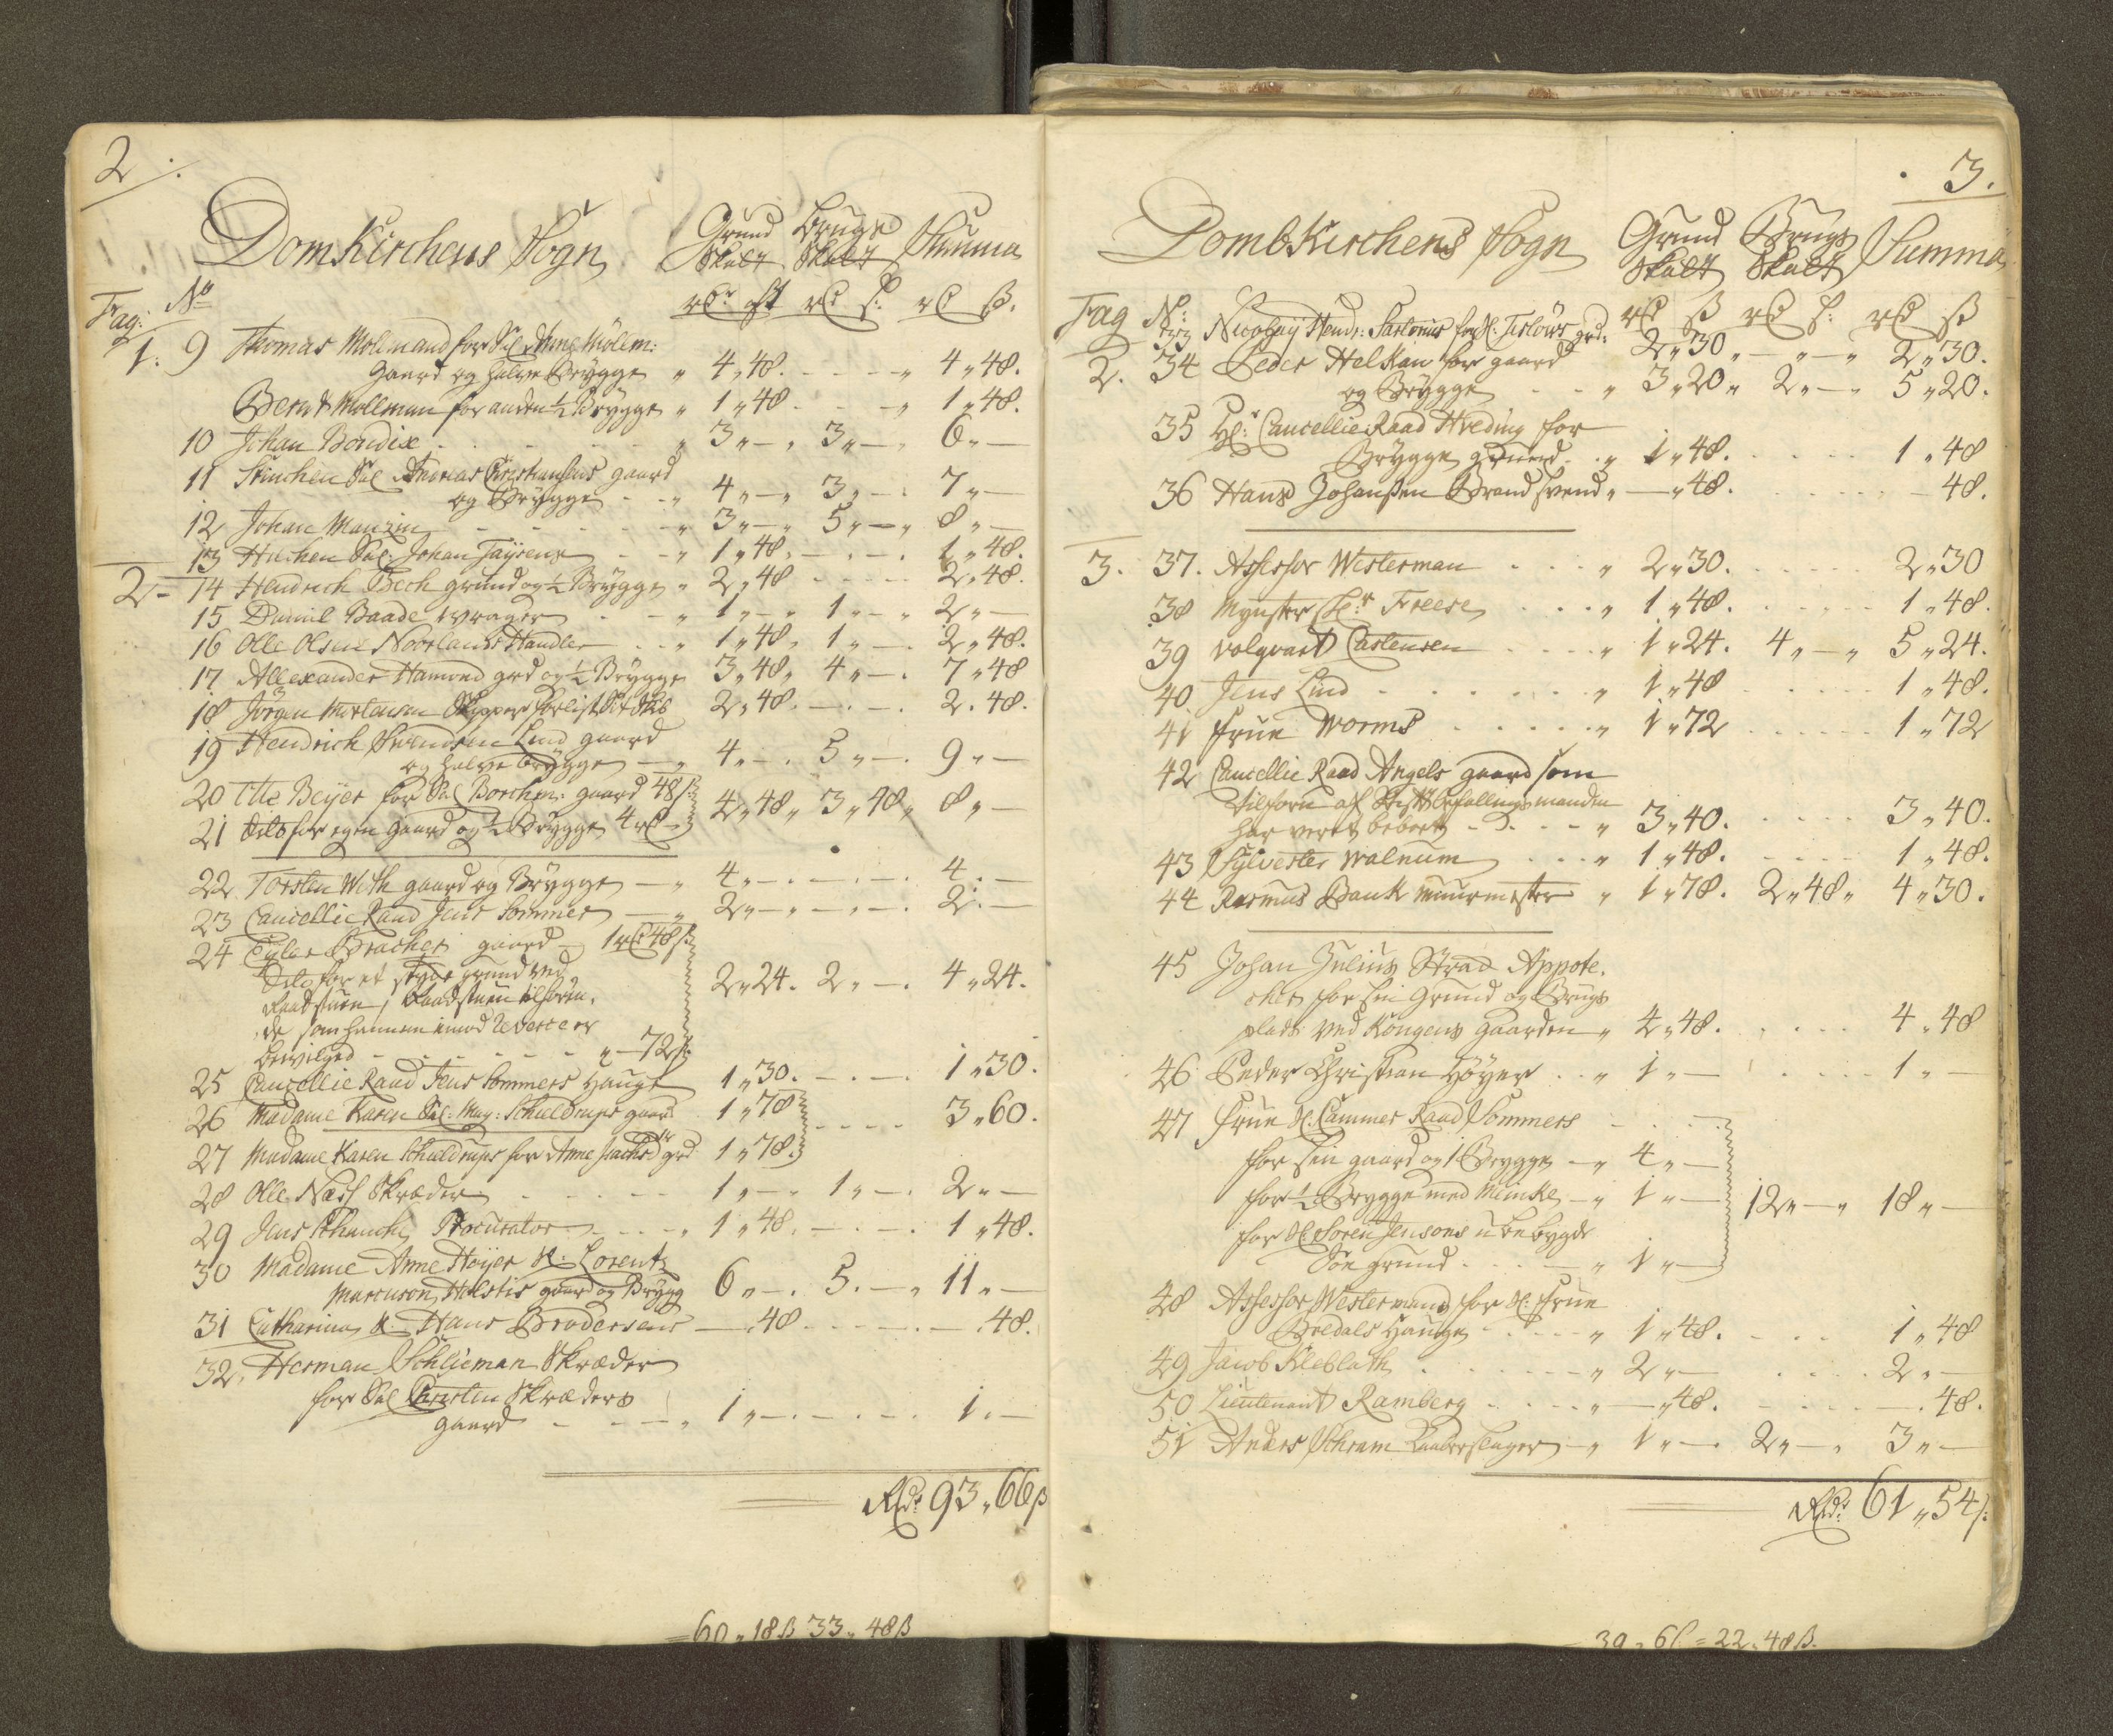 2.
DomKirchens Sogn Grund Skatt Brugs Skatt Summa
Fag: No rdr ort rd s: rd ß.
1. 9 Thomas Mollmand for Sal Anne Möllm:
gaard og halve Brygge " 4 " 48. - - - " 4 " 48.
Berndt Mollman for anden ½ Brygge " 1 " 48 - - - " 1 " 48.
10 Johan Bendix - - - " 3 " — " 3 " — " 6 " —
11 Stinchen Sal Andreas Christiansens gaard
og Brygge - - " 4 " — " 3 " — . 7 " —
12 Johan Manzin - - - " 3 " — " 5 " — " 8 " —
13 Hilchen Sal: Johan Taysens - - " 1 " 48. — . — . 1 " 48.
2 - 14 Hendrich Bech grund og ½ Brygge " 2 " 48 - - - 2 " 48.
15 Daniel Baade wrager - - " 1 " — " 1 " — " 2 " —
16 Olle Olsen Noorlands Handler - - " 1 " 48 " 1 " — . 2 " 48.
17 Allexander Hamond grd og ½ Brygge 3 " 48 " 4 " — . 7 " 48
18 Jörgen Mortensen Skipper 2 " 48. — . — . 2 . 48.
19 Hendrich Svendsen Lind gaard
og halve brygge — " 4 " — . 5 " — . 9 " —
20 Otte Beyer for Sal Borchm: gaard 48 s:
21 dito for egen gaard og ½ Brygge 4 rd — 4 " 48 " 3 " 48 " 8 " —
22 Torsten With gaard og Brygge — " 4 " — . — . — . 4 . —
23 Cancellie Raad Jens Sommer — " 2 " — " — " — . 2 . —
24 Eyler Bracher gaard — 1 rd 48 s:
dito for et stycke grund ved
Raadstuen, Raadstuen tilforn,
de som hannem imod Reverce er
bevilged - - - - - " — 72 s: 2 " 24. 2 " — . 4 " 24.
25 Cancellie Raad Jens Sommers Hauge 1 " 30. — . — . 1 " 30.
26 Madame Karen Sal: Mag: Schieldrups gaard 1 " 78
27 Madame Karen Schieldrups for Anne grd 1 " 78. - - - - 3 " 60.
28 Olle Næss Skræder - - - - 1 " — " 1 " — . 2 " —
29 Jens Schanche Procurator - - - " 1 " 48. — . — . 1 " 48.
30 Madame Anne Höyer Sl: Lorentz
Marcuson Holstis gaard og Brygg 6 " — . 5 . — " 11 " —
31 Catharina Sl: Hans Brodersens — . 48 - - - - — . 48.
32. Herman Schlieman Skræder
for Sal Carsten Skræders
gaard - - - " 1 " — . — . — . 1 . —
Rdr 93 " 66 ß
= 60 " 18 ß 33 " 48 ß
3.
DombKirchens Sogn Grund Skatt Brugs Skatt Summa
Fag N: rd ß rd s: rd ß
33 Nicolaij Hendr: Sartorius for Sl: grd. 2 " 30 " — " — " 2 " 30.
2. 34 Peder Helkan for gaard
og Brygge - - " 3 " 20 " 2 " — " 5 " 20.
35 Hr: Cancellie Raad Hveding for
Brygge grund . . " 1 " 48. - - - - 1 " 48
36 Hans Johanßen Brandsvend " — " 48. - - - - — 48.
3. 37. Assessor Westerman - - - " 2 " 30. - - - - 2 " 30
38 Mynster Skr Freese - - - " 1 " 48. - - - - 1 " 48.
39 Volqvart Castensen - - - " 1 " 24. 4 " — " 5 " 24.
40 Jens Lind - - - - - " 1 " 48 - - - - 1 " 48.
41 Frue Worms - - - - - " 1 " 72 - - - - 1 " 72
42 Cancellie Raad Angels gaard som
tilforn af Stiftbefallingsmanden
har veret beboet - - - " 3 " 40. - - - - 3 " 40.
43 Sylvester Walnum - - - " 1 " 48. - - - - 1 " 48.
44 Rasmus Bank muurmester " 1 " 78. 2 " 48 " 4 " 30.
45 Johan Julius Strad Appote.
cher for sin Grund og Brugs
plads ved Kongens Gaarden " 4 " 48. - - - 4 " 48
46 Peder Christian Höyer - - " 1 " — - - - - 1 " —
47 Frue Sl: Cammer Raad Sommers - - -
for sin gaard og 1 Brygge — " 4 " —
for ½ Brygge med Meincke — " 1 " — 12 " — " 18 " —
for Sl: Soren Jensons ubebygde
Söe grund - - - — " 1 " —
48 Assessor Westermand for Sl: Frue
Bredals Hauge - - - " 1 " 48. - - - 1 " 48
49 Jacob Kleblath - - - - " 2 " — - - - - 2 " —
50 Lieutenant Ramberg - - - " — " 48. - - - - — . 48.
51 Anders Schram Kaaberslager — " 1 " — . 2 " — . 3 " —
Rdr: 61 " 54 s:
= 39 " 6 s = 22 " 48 ß.